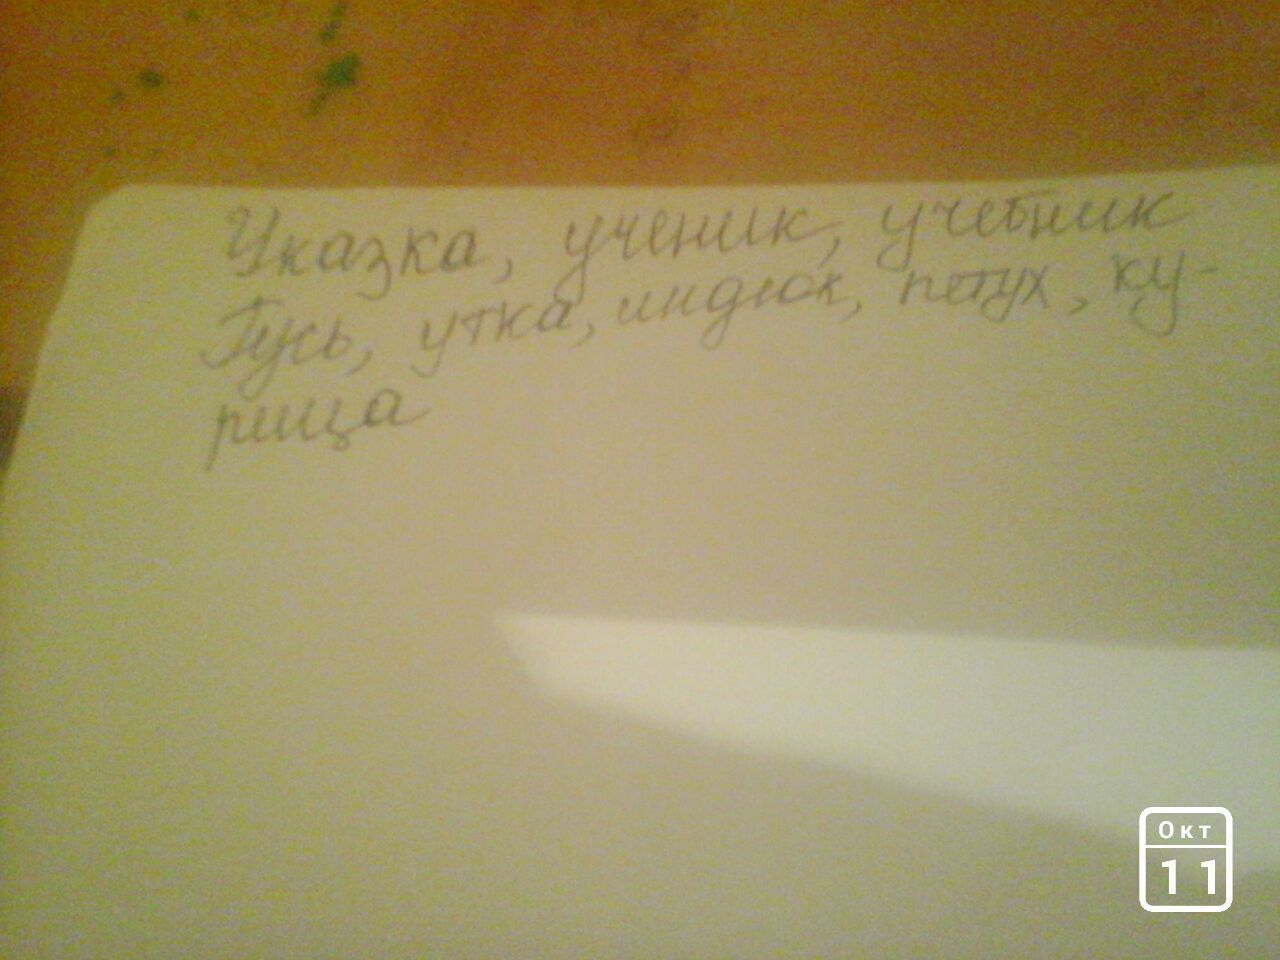 Указка, ученик, учебник
Гусь, утка, индюк, петух, ку-
рица
Окт
11